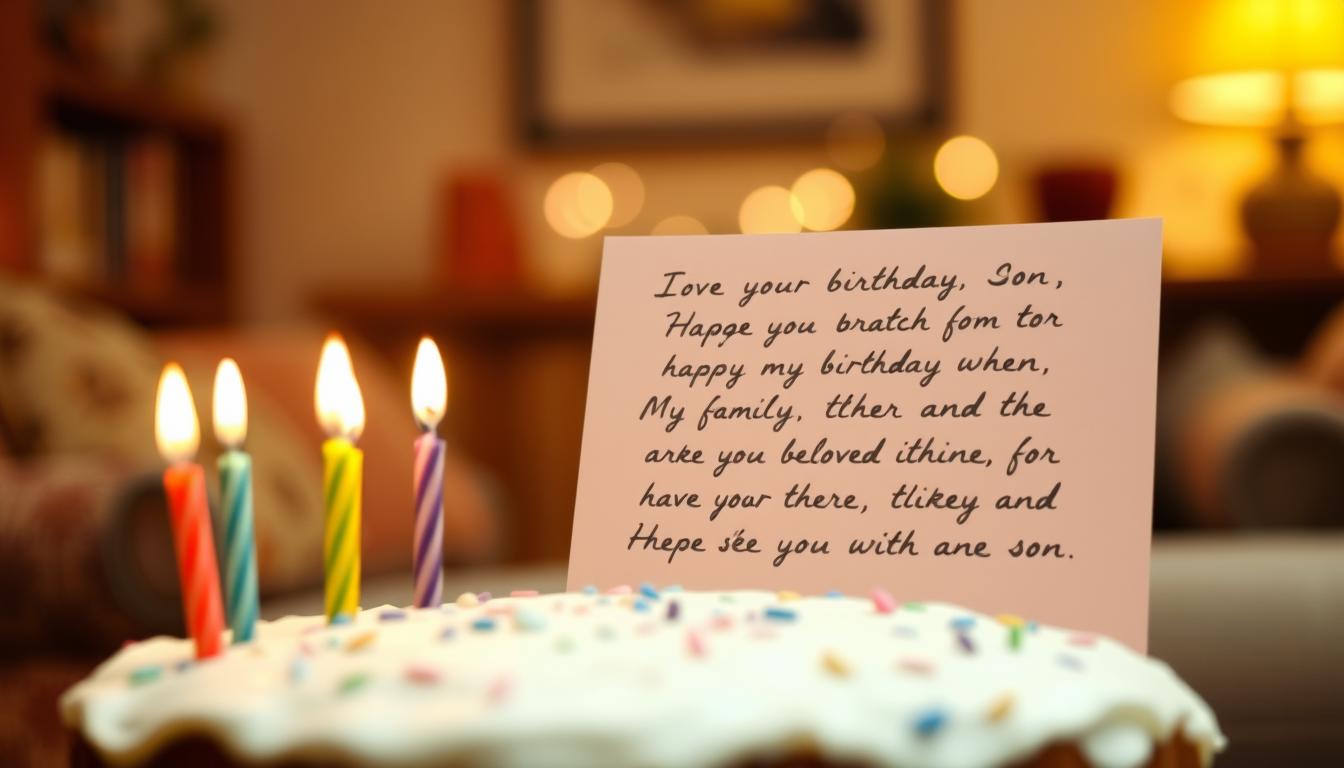 Iove your birthday, Son,
Hapge you bratch fom tor
happy my birthday when,
My family, tther and the
arke you beloved ithine, for
have your there, tlikey and
Hepe see you with ane son.